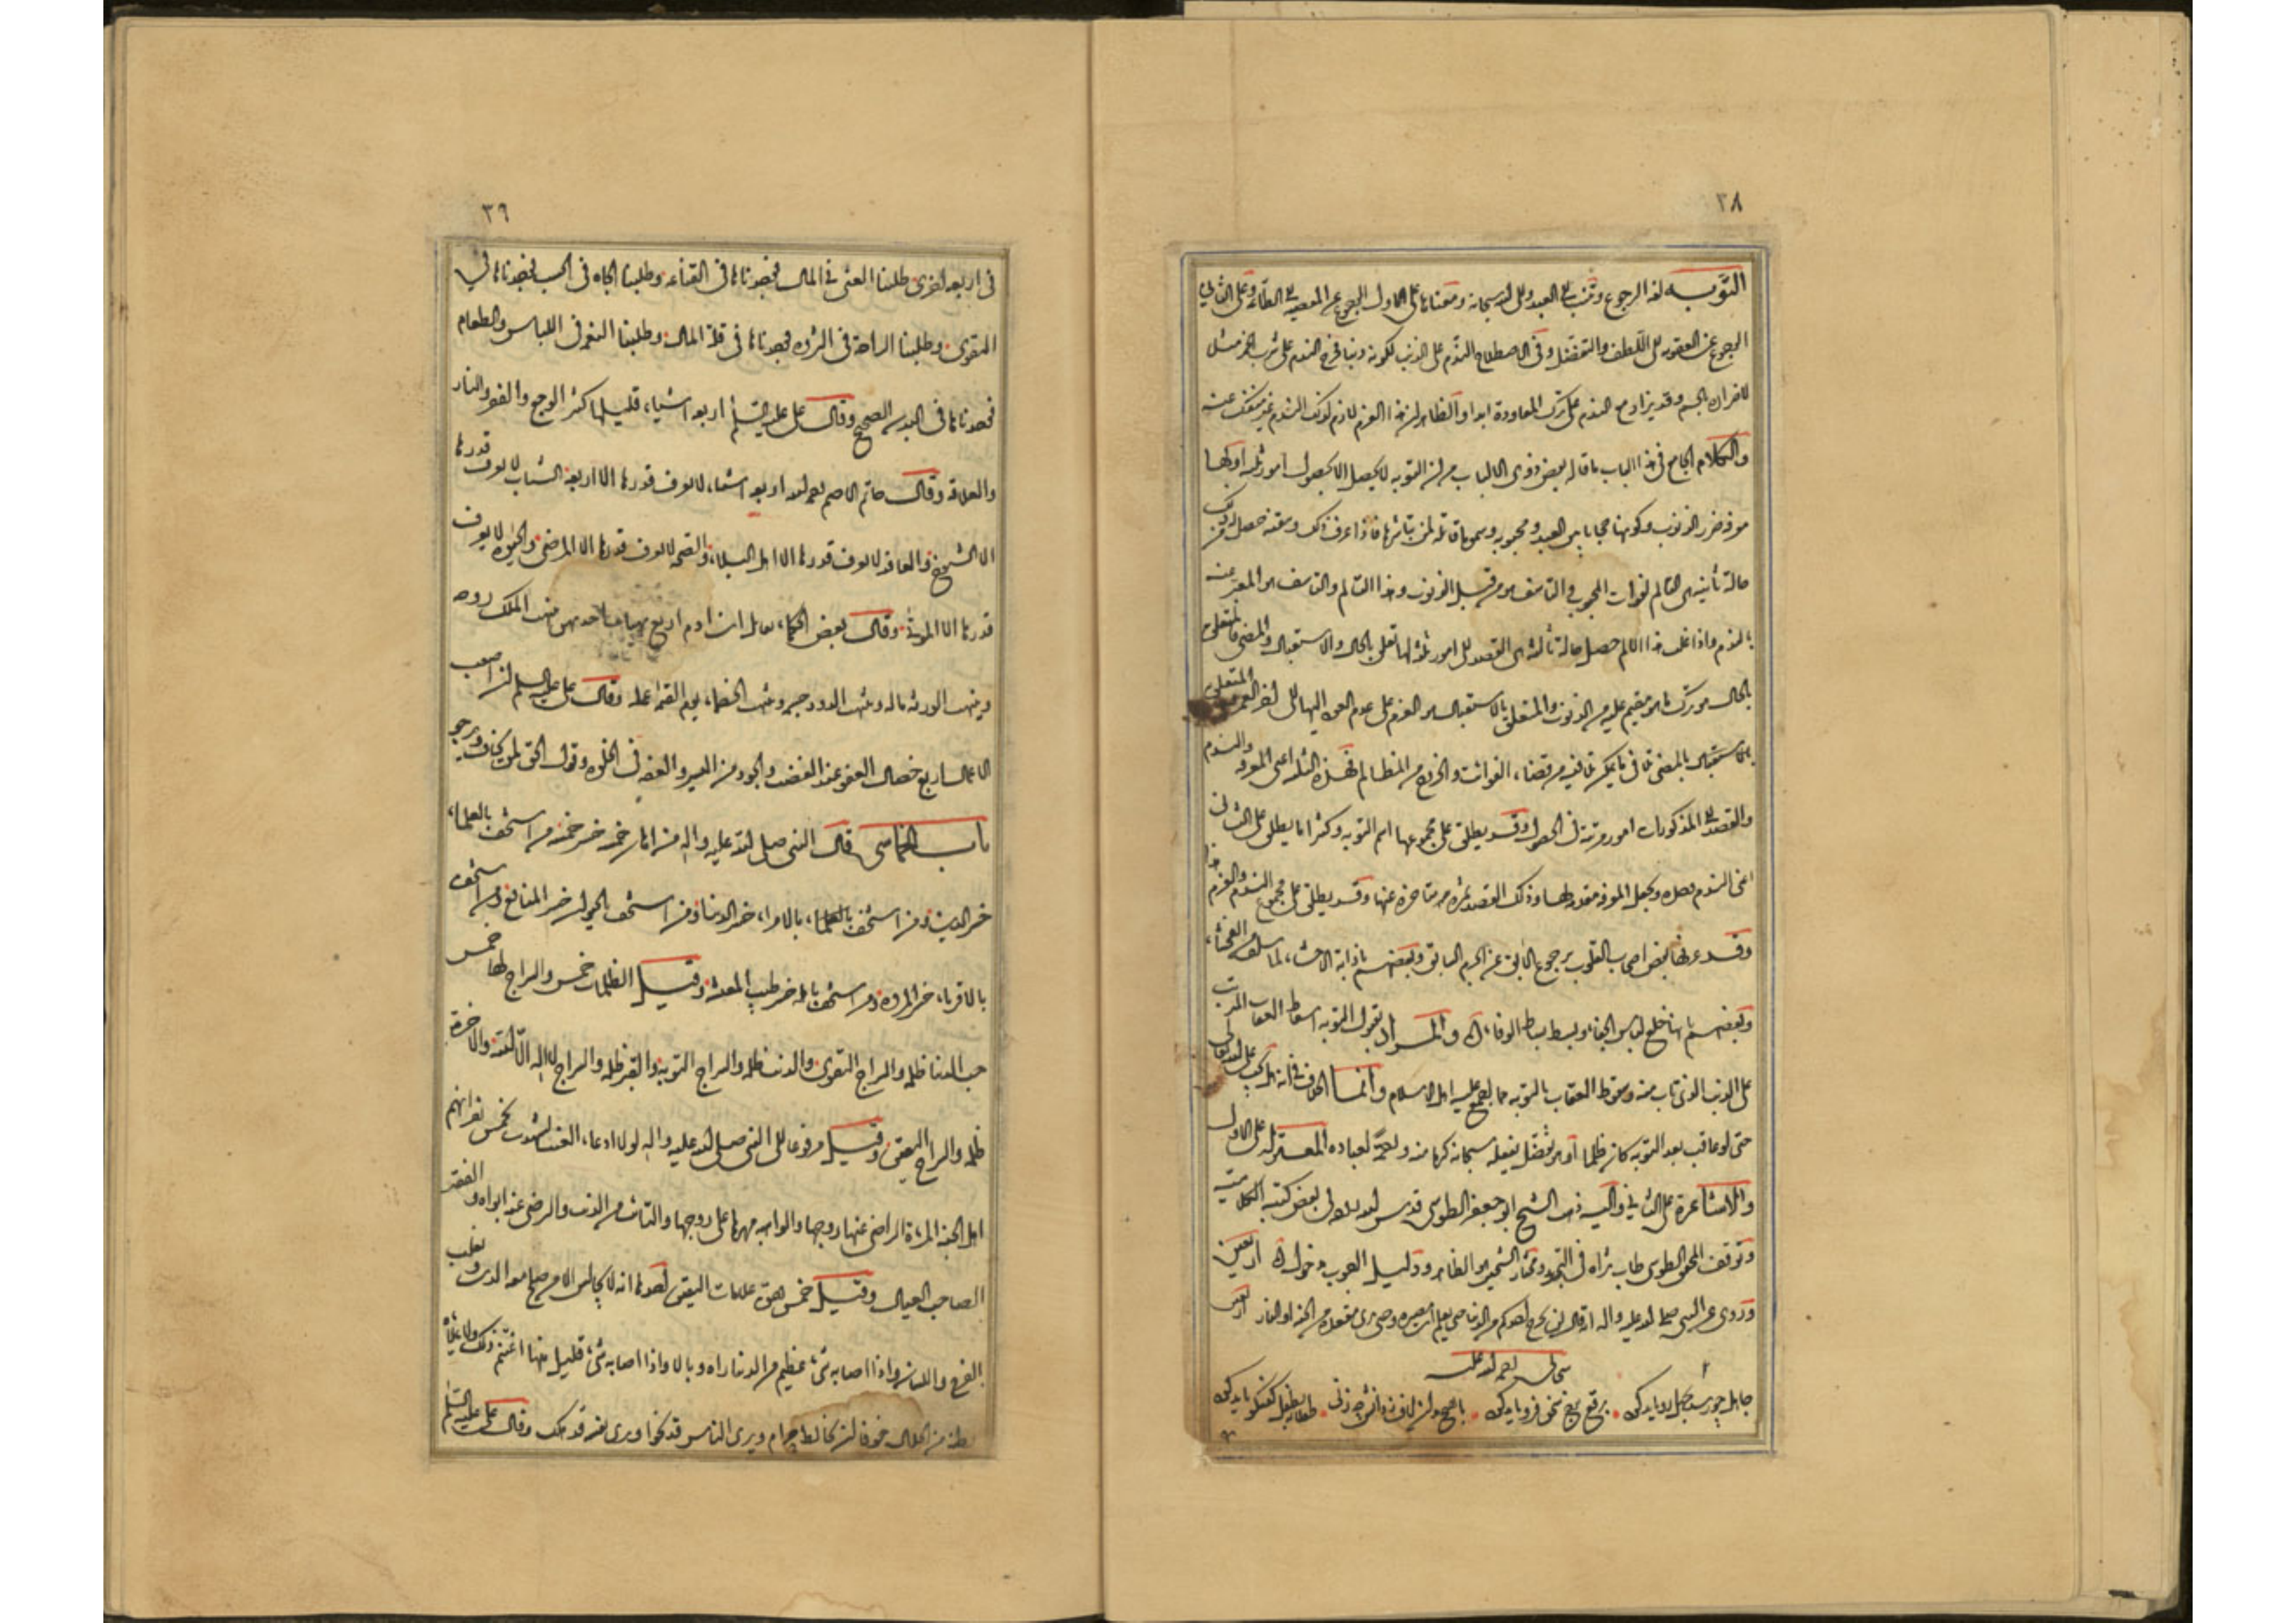 ٣٨
التوبه لغة الرجوع وتنسب الى العبد والى الله سبحانه ومعناها على الاول الرجوع عن المعصيه الى الطاعة وعلى الثاني
الرجوع عن العقوبه الى اللطف والتفضل وفى الاصطلاح الندم على الذنب لكونه ذنبا فخرج الندم على شرب الخمر مثلا
لاضراره بالجسم وقد يزاد مع العزم على ترك المعاودة ابدا والظاهر ان هذا العزم لازم لذلك الندم غير منفك عنه
والكلام الجامع فى هذا الباب ما قاله بعض ذوى الالباب من ان التوبه لا يحصل الا بحصول امور ثلثه اولها
معرفة ضرر الذنوب وكونها حجابا بين العبد ومحبوبه وسموما قاتلة لمن يباشرها فاذا عرف ذلك وتيقنه حصل له من ذلك
حالة ثانيه هى التالم لفوات المحبوب والتاسف من قبل الذنوب وهذا التالم والتاسف هو المعبر عنه
بالندم واذا غلب هذا الالم حصل حالة ثالثه هى القصد الى امور ثلثه لها تعلق بالحال والاستقبال والمضى فالمتعلق
بالحال هو ترك ما هو مقيم عليه من الذنوب والمتعلق بالاستقبال هو العزم على عدم العود اليها الى اخر العمر والمتعلق
بالمضى تلافى ما يمكن تلافيه من قضاء الفوائت والخروج من المظالم فهذه الثلثه اعنى المعرفه والندم
والقصد الى المذكورات امور مرتبة فى الحصول وقد يطلق على مجموعها اسم التوبه وكثيرا ما يطلق على الثانى
اعنى الندم وحده ويجعل المعرفه مقدمة لها وذلك القصد ثمرة متاخرة عنها وقد يطلق على مجموع الندم والعزم هذا
وقد عرفها بعض اصحاب القلوب برجوع الآبق عن الجرم السابق وبعضهم باذابة الاحشاء لما سلف من الفحشاء
وبعضهم بانها خلع لباس الجفاء وبسط بساط الوفاء والمراد بقبول التوبه اسقاط العقاب المرتب
على الذنب الذى تاب منه وسقوط العقاب بالتوبه مما اجمع عليه اهل الاسلام وانما الخلاف فى انه هل يجب على الله تعالى
حتى لو عاقب بعد التوبه كان ظلما او هو تفضل يفعله سبحانه كرما منه ورحمة لعباده المعتزله على الاول
والاشاعرة على الثانى واليه ذهب الشيخ ابو جعفر الطوسى قدس الله روحه فى بعض كتبه الكلاميه
وتوقف المحقق الطوسى طاب ثراه فى التجريد ومختار الشيخين هو الظاهر ودليل الوجوب مدخول اربعين
وروى عن النبى صلى الله عليه واله انه قال لن يخرج احدكم من الدنيا حتى يعلم اين مصيره وحتى يرى مقعده من الجنة او النار اربعين
سحابى رحمة الله عليه
٣٩
فى اربعه اخرى طلبنا الغنى فى المال فوجدناها فى القناعه وطلبنا الجاه فى الحسب فوجدناها فى
التقوى وطلبنا الراحة فى الثروه فوجدناها فى قلة المال وطلبنا النعمه فى اللباس والطعام
فوجدناها فى البدن الصحيح وقال على عليه السلم اربعه اشياء قليلها كثير الوجع والفقر والنار
والعداوة وقال حاتم الاصم رحمه الله اربعه اشياء لا يعرف قدرها الا اربعة الشباب لا يعرف قدرها
الا الشيوخ والعافيه لا يعرف قدرها الا اهل البلاء والصحه لا يعرف قدرها الا المرضى والحيوة لا يعرف
قدرها الا الموتى وقال بعض الحكماء يقابل ابن ادم اربع نهبات واحد منهن ينهب الملك روحه
وينهب الورثه ماله وينهب الدود جسمه وينهب الخصماء يوم القيمه عمله وقال على عليه السلم ان اصعب
الاعمال اربع خصال العفو عند الغضب والجود من العسير والعفه فى الخلوه وقول الحق لمن يخاف ويرجو
باب الخماسى قال النبى صلى الله عليه واله من اهان خمسه خسر خمسه من استخف بالعلماء
خسر الدين ومن استخف بالامراء خسر الدنيا ومن استخف بالجيران خسر المنافع ومن استخف
بالاقرباء خسر المروه ومن استخف باهله خسر طيب المعيشه وقيل الظلمات خمس والسراج لها خمس
حب الدنيا ظلمه والسراج التقوى والذنب ظلمه والسراج التوبه والقبر ظلمه والسراج لا اله الا الله والاخرة
ظلمه والسراج اليقين وقيل مرفوعا الى النبى صلى الله عليه واله لولا ادعاء الغيب لشهدت بخمس نفر انهم
اهل الجنه المرءة الراضى عنها زوجها والواهبه مهرها على زوجها والتائب من الذنب والرضى عنه ابواه والفقير
الصاحب العيال وقيل خمس هن علامات اليقين احدها انه لا يجالس الا من يصلح معه الدين ويغلب
الفرج واللسان واذا اصابه شىء عظيم من الدنيا راه وبالا واذا اصابه شىء قليل منها اغتنم ذلك ولا يملأ
بطنه من الحلال خوفا ان يخالطه حرام ويرى الناس قد نجوا ويرى نفسه قد هلك وقال على عليه السلم